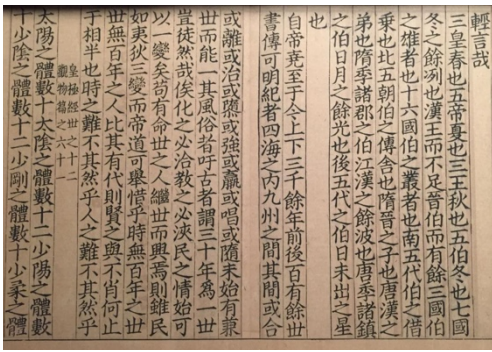 輕言哉
三皇春也五帝夏也三王秋也五伯冬也七國
冬之餘冽也漢王而不足晉伯而有餘三國伯
之雄者也十六國伯之叢者也南五代伯之借
乗也北五朝伯之傳舍也隋晉之子也唐漢之
弟也隋季諸郡之伯江漢之餘波也唐季諸鎮
之伯日月之餘光也後五代之伯日未出之星
也
自帝堯至于今上下三千餘年前後百有餘世
書傳可明紀者四海之內九州之間其間或合
或離或治或隳或強或羸或唱或隨未始有兼
世而能一其風俗者吁古者謂三十年為一世
豈徒然哉俟化之必洽教之必浹民之情始可
以一變矣苟有命世之人繼世而興焉則雖民
如夷狄三變而帝道可舉惜乎時無百年之世
世無百年之人比其有代則賢之與不肖何止
于相半也時之難不其然乎人之難不其然乎
皇極經世之十二
觀物篇之六十一
太陽之體數十太陰之體數十二少陽之體數
十少陰之體數十二少剛之體數十少柔之體